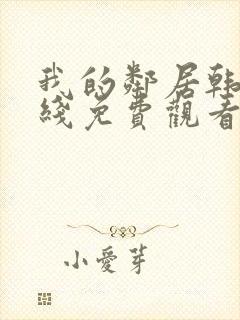 我的鄰居韩
綫免費觀看
小愛芽